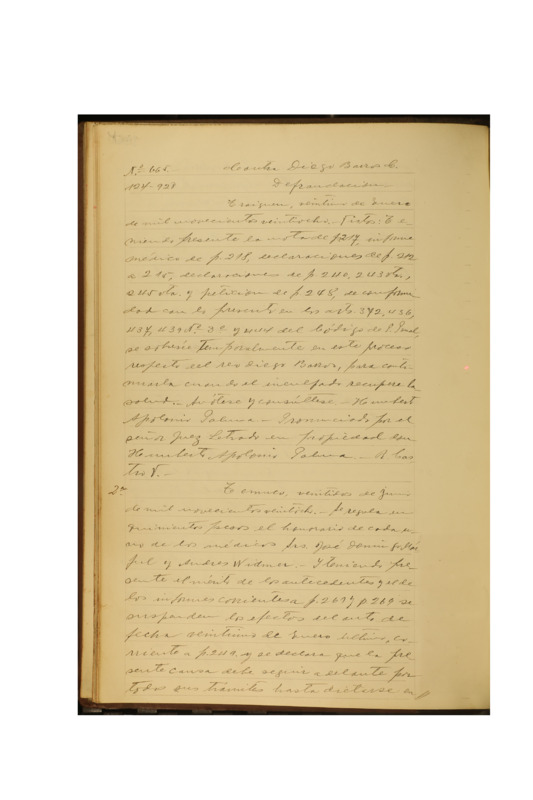 Nº 668. Contra Diego Barros C.
124-928 Defraudación
Traiguen, veintiuno de Enero
de mil novecientos veintiocho.- Vistos: Te-
niendo presente la nota de f. 217, informe
médico de f. 218, declaraciones de f. 212
a 215, declaraciones de f. 240, 243 vta,
245 vta. y peticion de f. 248, de conformi
dad con lo prescrito en los arts. 372, 436,
437, 439 Nº 3º y del Código de P. Penal,
se sobresee temporalmente en este proceso
respecto del reo Diego Barros, para conti-
nuarla cuando el inculpado recupere la
salud.- Anótese y consúltese.- Humberto
Apolonio Palma.- Pronunciado por el
señor Juez Letrado en propiedad don
Humberto Apolonio Palma.- R. Cas
tro V.-
2ª Temuco, veintidos de Junio
de mil novecientos veintiocho.- Se regula en
quinientos pesos el honorario de cada u-
no de los médicos Srs. José
y Andres Widmer.- Y teniendo pre-
sente el mérito de los antecedentes y el de
los informes corrientes a f. 267 y 269 se
suspenden los efectos del auto de
fecha veintiuno de Enero último, co-
rriente a f. 249 y se declara que la pre
sente causa debe seguir adelante por
todos sus trámites hasta dictarse en